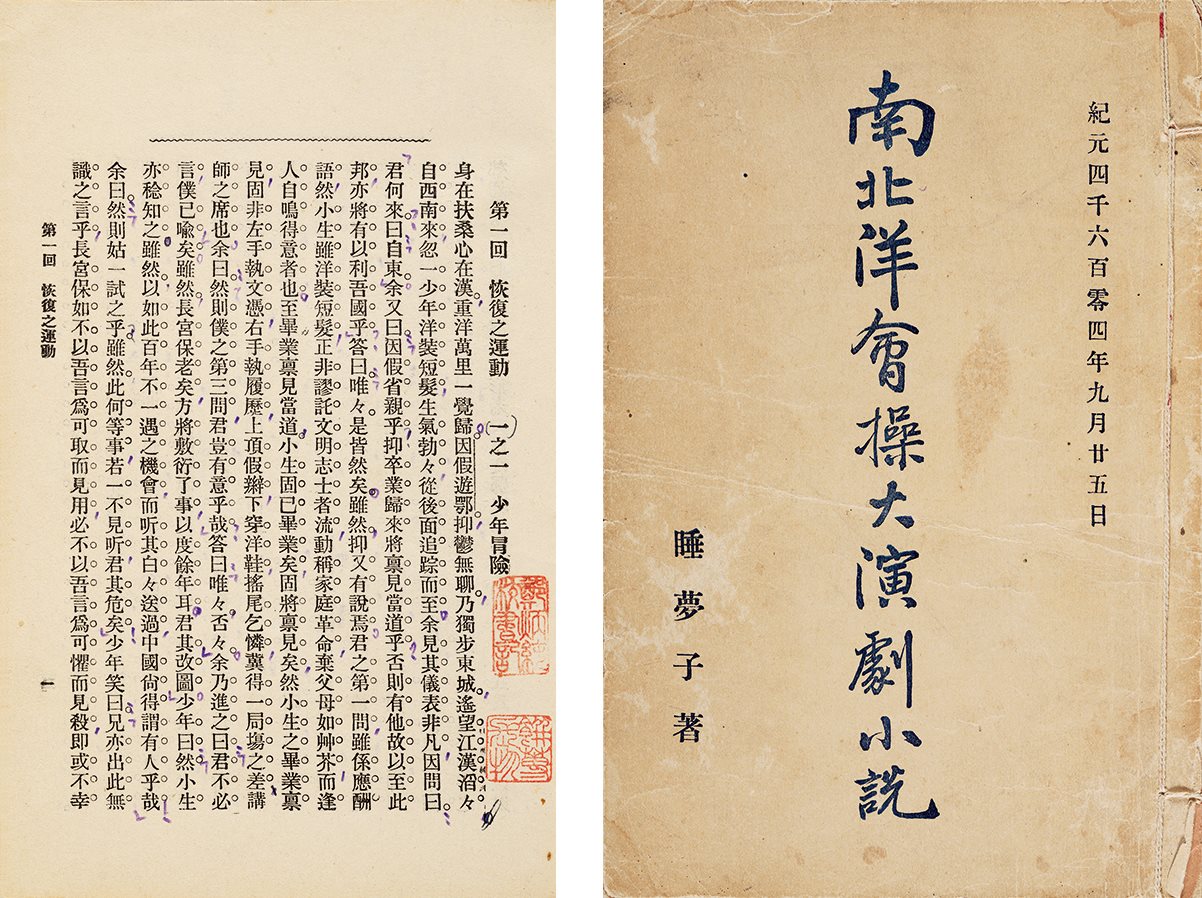 紀元四千六百零四年九月廿五日
南北洋會操大演劇小説
睡夢子著
第一回 恢復之運動 一之一 少年冒險
身在扶桑心在漢重洋萬里一覺歸因假遊鄂抑鬱無聊乃獨步東城遙望江漢滔々
自西南來忽一少年洋裝短髮生氣勃々從後面追踪而至余見其儀表非凡因問曰
君何來曰自東余又曰因假省親乎抑卒業歸來將禀見當道乎否則有他故以至此
邦亦將有以利吾國乎答曰唯々是皆然矣雖然抑又有說焉君之第一問雖係應酬
語然小生雖洋裝短髮正非謬託文明志士者流動稱家庭革命棄父母如艸芥而逢
人自鳴得意者也至畢業禀見當道小生固已畢業矣固將禀見矣然小生之畢業禀
見固非左手執文憑右手執履歷上頂假辮下穿洋鞋搖尾乞憐冀得一局塲之差講
師之席也余曰然則僕之第三問君豈有意乎哉答曰唯々否々余乃進之曰君不必
言僕已喩矣雖然長宮保老矣方將敷衍了事以度餘年耳君其改圖少年曰然小生
亦稔知之雖然以如此百年不一遇之機會而听其白々送過中國尙得謂有人乎哉
余曰然則姑一試之乎雖然此何等事若一不見听君其危矣少年笑曰兄亦出此無
識之言乎長宮保如不以吾言爲可取而見用必不以吾言爲可懼而見殺即或不幸
第一回 恢復之運動
一